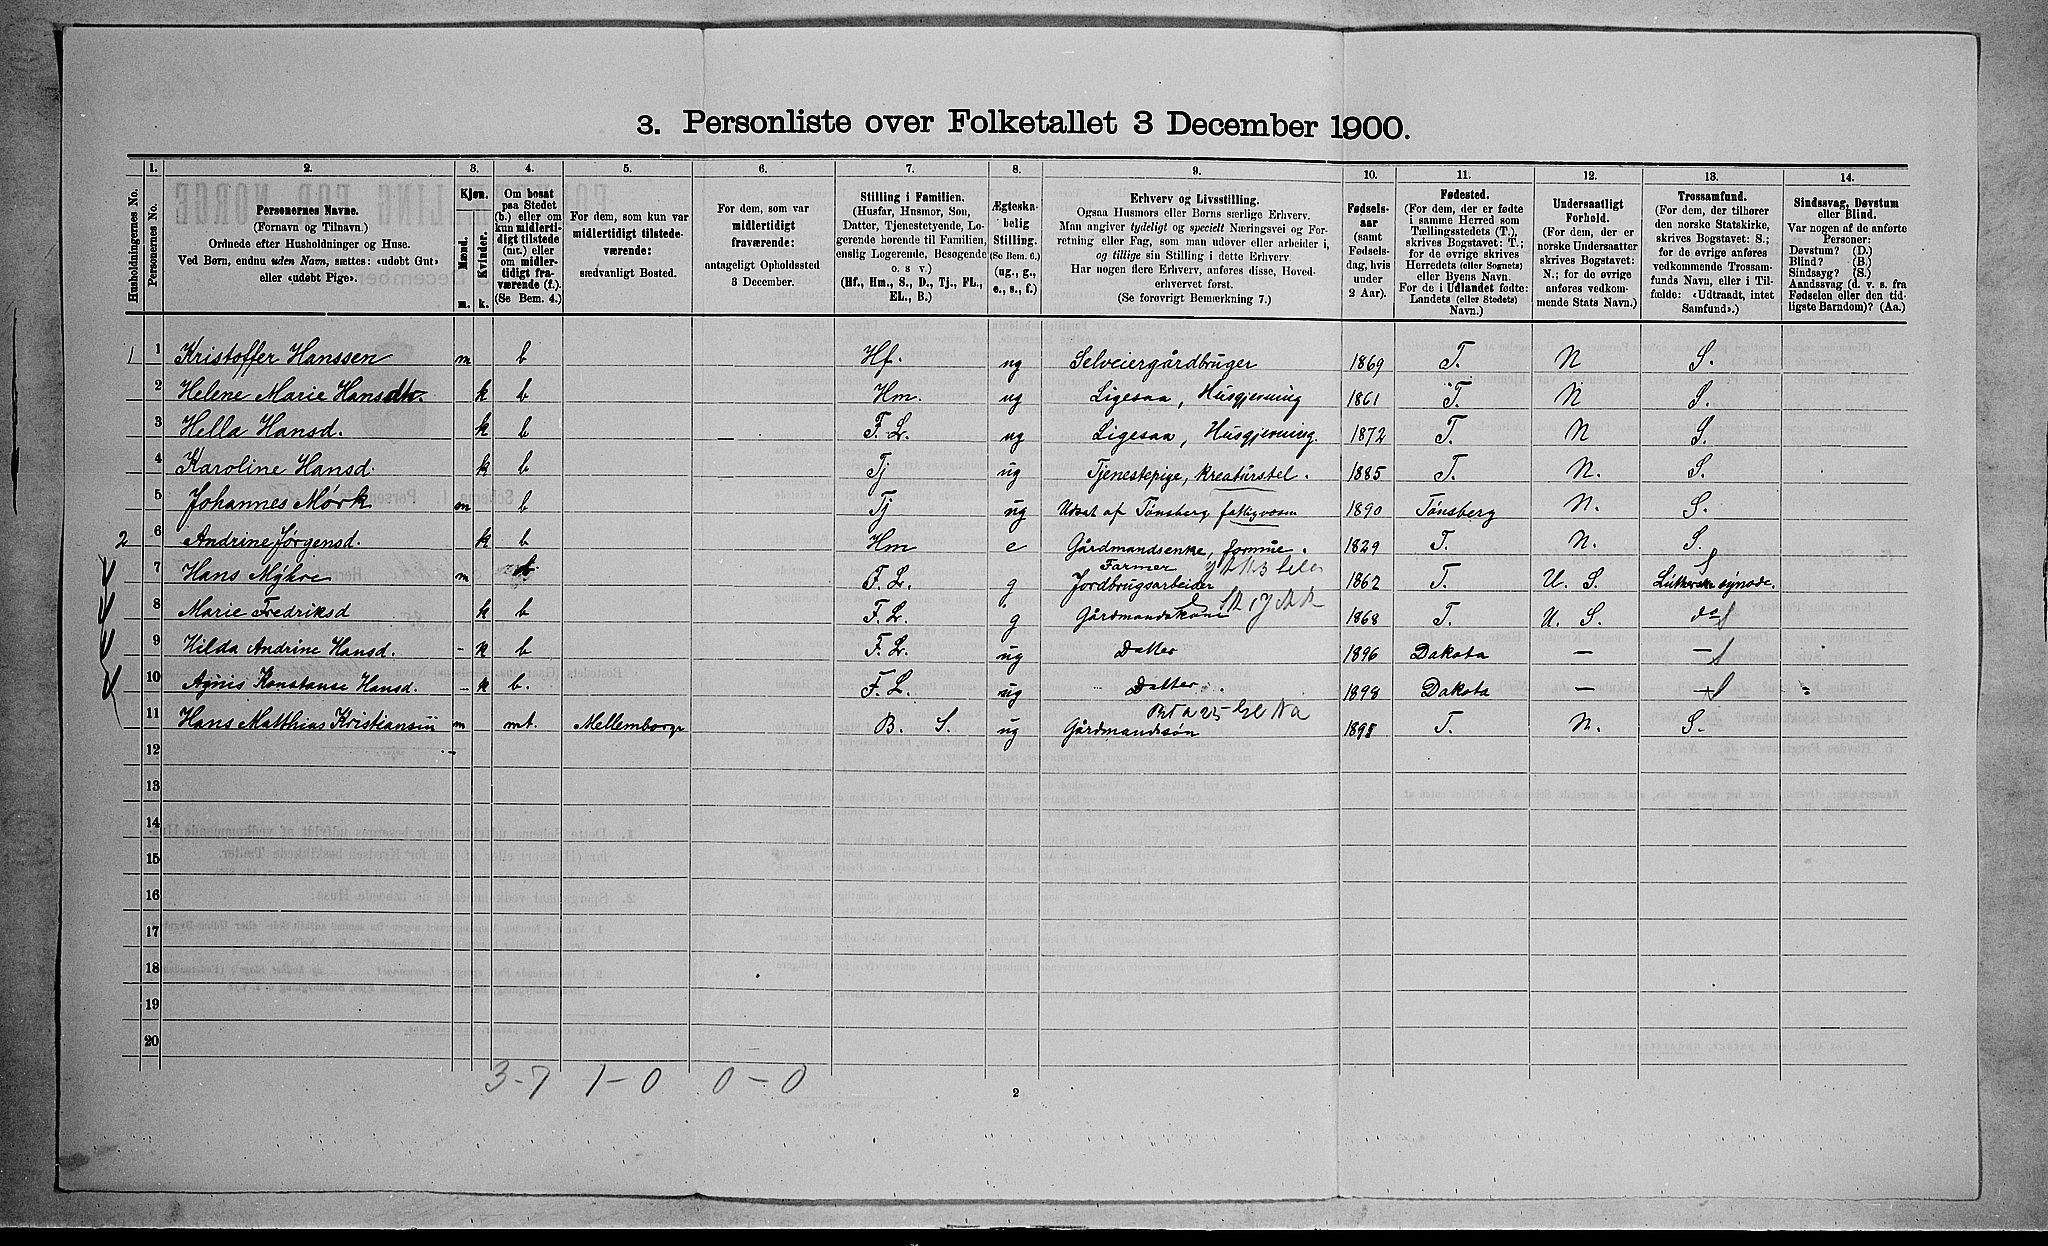 3. Personliste over Folketallet 3 December 1900.
Husholdningernes No.
1.
Personernes No.
2.
Personernes Navne.
(Fornavn og Tilnavn.)
Ordnede efter Husholdninger og Huse.
Ved Børn, endnu uden Navn, sættes: «udøbt Gut»
eller «udøbt Pige».
3.
Kjøn.
Mænd.
Kvinder.
m.
k.
4.
Om bosat
paa Stedet
(b.) eller om
kun midlerti-
digt tilstede
(mt.) eller
om midler-
tidigt fra-
værende (f.).
(Se Bem. 4.)
5.
For dem, som kun var
midlertidigt tilstede-
værende:
sædvanligt Bosted.
6.
For dem, som var
midlertidigt
fraværende:
antageligt Opholdssted
3 December.
7.
Stilling i Familien.
(Husfar, Husmor, Søn,
Datter, Tjenestetyende, Lo-
gerende hørende til Familien,
enslig Logerende, Besøgende
o. s v.)
(Hf., Hm., S., D., Tj., FL.,
EL., B.)
8.
Ægteska-
belig
Stilling.
(Se Bem. 6.)
(ug., g.,
e., s., f.)
9.
Erhverv og Livsstilling.
Ogsaa Husmors eller Børns særlige Erhverv.
Man angiver tydeligt og specielt Næringsvei og For-
retning eller Fag, som man udøver eller arbeider i,
og tillige sin Stilling i dette Erhverv.
Har nogen flere Erhverv, anføres disse, Hoved-
erhvervet først.
(Se forøvrigt Bemærkning 7.)
10.
Fødsels-
aar
(samt
Fødsels-
dag, hvis
under
2 Aar).
11.
Fødested.
(For dem, der er fødte
i samme Herred som
Tællingsstedets (T.),
skrives Bogstavet: T.;
for de øvrige skrives
Herredets (eller Sognets)
eller Byens Navn.
For de i Udlandet fødte:
Landets (eller Stedets)
Navn.)
12.
Undersaatligt
Forhold.
(For dem, der er
norske Undersaatter
skrives Bogstavet:
N.; for de øvrige
anføres vedkom-
mende Stats Navn.)
13.
Trossamfund.
(For dem, der tilhører
den norske Statskirke,
skrives Bogstavet: S.;
for de øvrige anføres
vedkommende Trossam-
funds Navn, eller i Til-
fælde: «Udtraadt, intet
Samfund».)
14.
Sindssvag, Døvstum
eller Blind.
Var nogen af de anførte
Personer:
Døvstum? (D.)
Blind? (B.)
Sindssyg? (S.)
Aandssvag (d. v. s. fra
Fødselen eller den tid-
ligste Barndom)? (Aa.)
1 1 Kristoffer Hanssen m b Hf. ug Selveiergårdbruger 1869 T. N S.
2 Helene Marie Hansdtr. k b Hm. ug Ligesaa, Husgjerning 1861 T. N S.
3 Hella Hansd. k b F. L. ug Ligesaa, Husgjerning. 1872 T. N S.
4 Karoline Hansd. k b Tj ug Tjenestepige, kreaturstel. 1885 T. N. S.
5 Johannes Mørk m b Tj ug Udsat af Tønsberg fattigvæsen 1890 Tønsberg N. S.
2 6 Andrine Jørgensd. k b Hm e Gårdmandsenke, formue. 1829 T. N. S.
Farmer
7 Hans Myhre m b F. L. g Jordbrugsarbeider 1862 T. U. S. Lutherske synode.
8 Marie Fredriksd k b F. L. g Gårdmandskone 1868 T. U. S. do
9 Hilda Andrine Hansd. - k b F. L. ug Datter 1896 Dakota — —
10 Agnis Konstanse Hansd. - k b. F. L. ug Datter 1898 Dakota — —
11 Hans Matthias Kristiansen m mt. Mellemborge B. S. ug Gårdmandssøn T. N. S.
12
13
14
15
16
17
18
19
20
3-7 1-0 0-0
2